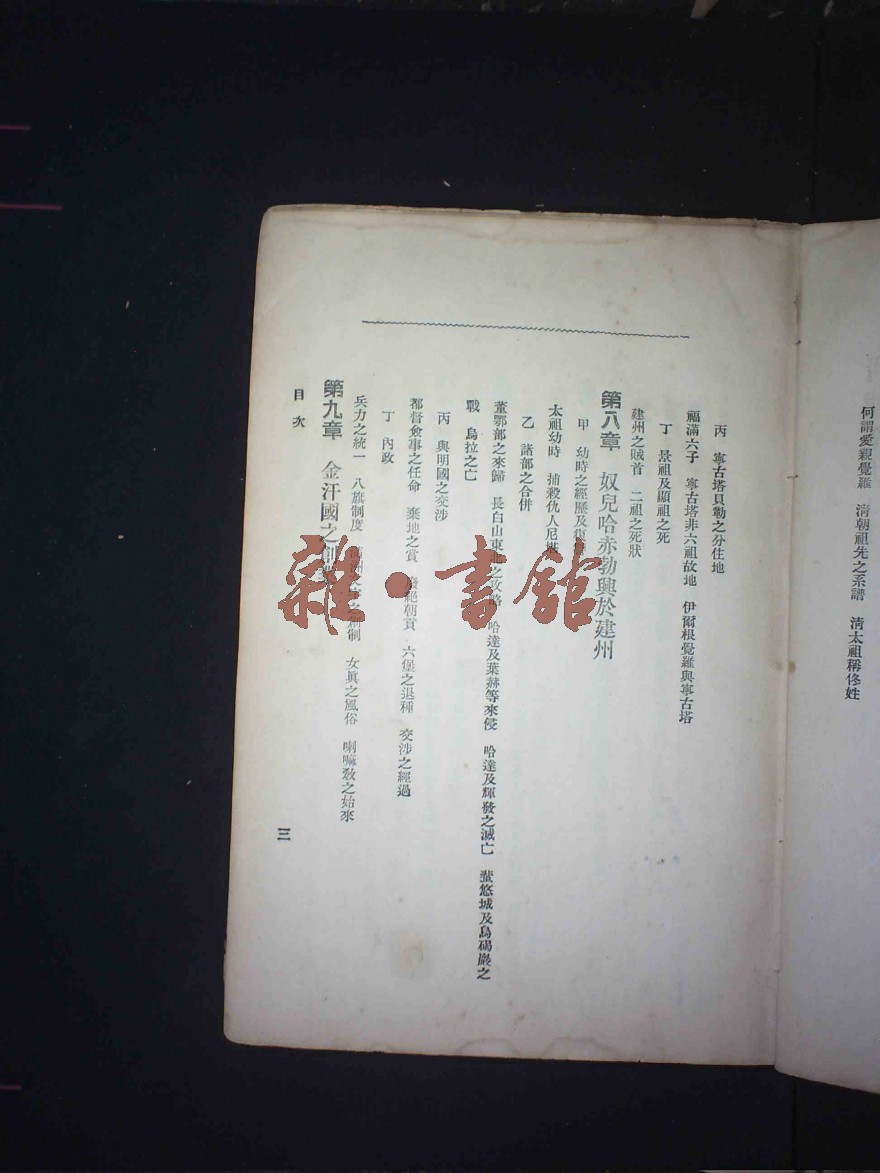 何謂愛親覺羅　清朝祖先之系譜　清太祖稱佟姓
丙　寧古塔貝勒之分住地
福滿六子　寧古塔非六祖故地　伊爾根覺羅與寧古塔
丁　景祖及顯祖之死
建州之賊首　二祖之死狀
第八章　奴兒哈赤勃興於建州
甲　幼時之經歷及復
太祖幼時　捕殺仇人尼堪
乙　諸部之合併
董鄂部之來歸　長白山東北之攻略　哈達及葉赫等來侵　哈達及輝發之滅亡　蜚悠城及烏碣巖之
戰　烏拉之亡
丙　與明國之交涉
都督僉事之任命　棄地之賞　廢絕朝貢　六堡之退種　交涉之經過
丁　內政
兵力之統一　八旗制度　之創制　女眞之風俗　喇嘛敎之始來
第九章　金汗國之創業
目次
三
雜·書館